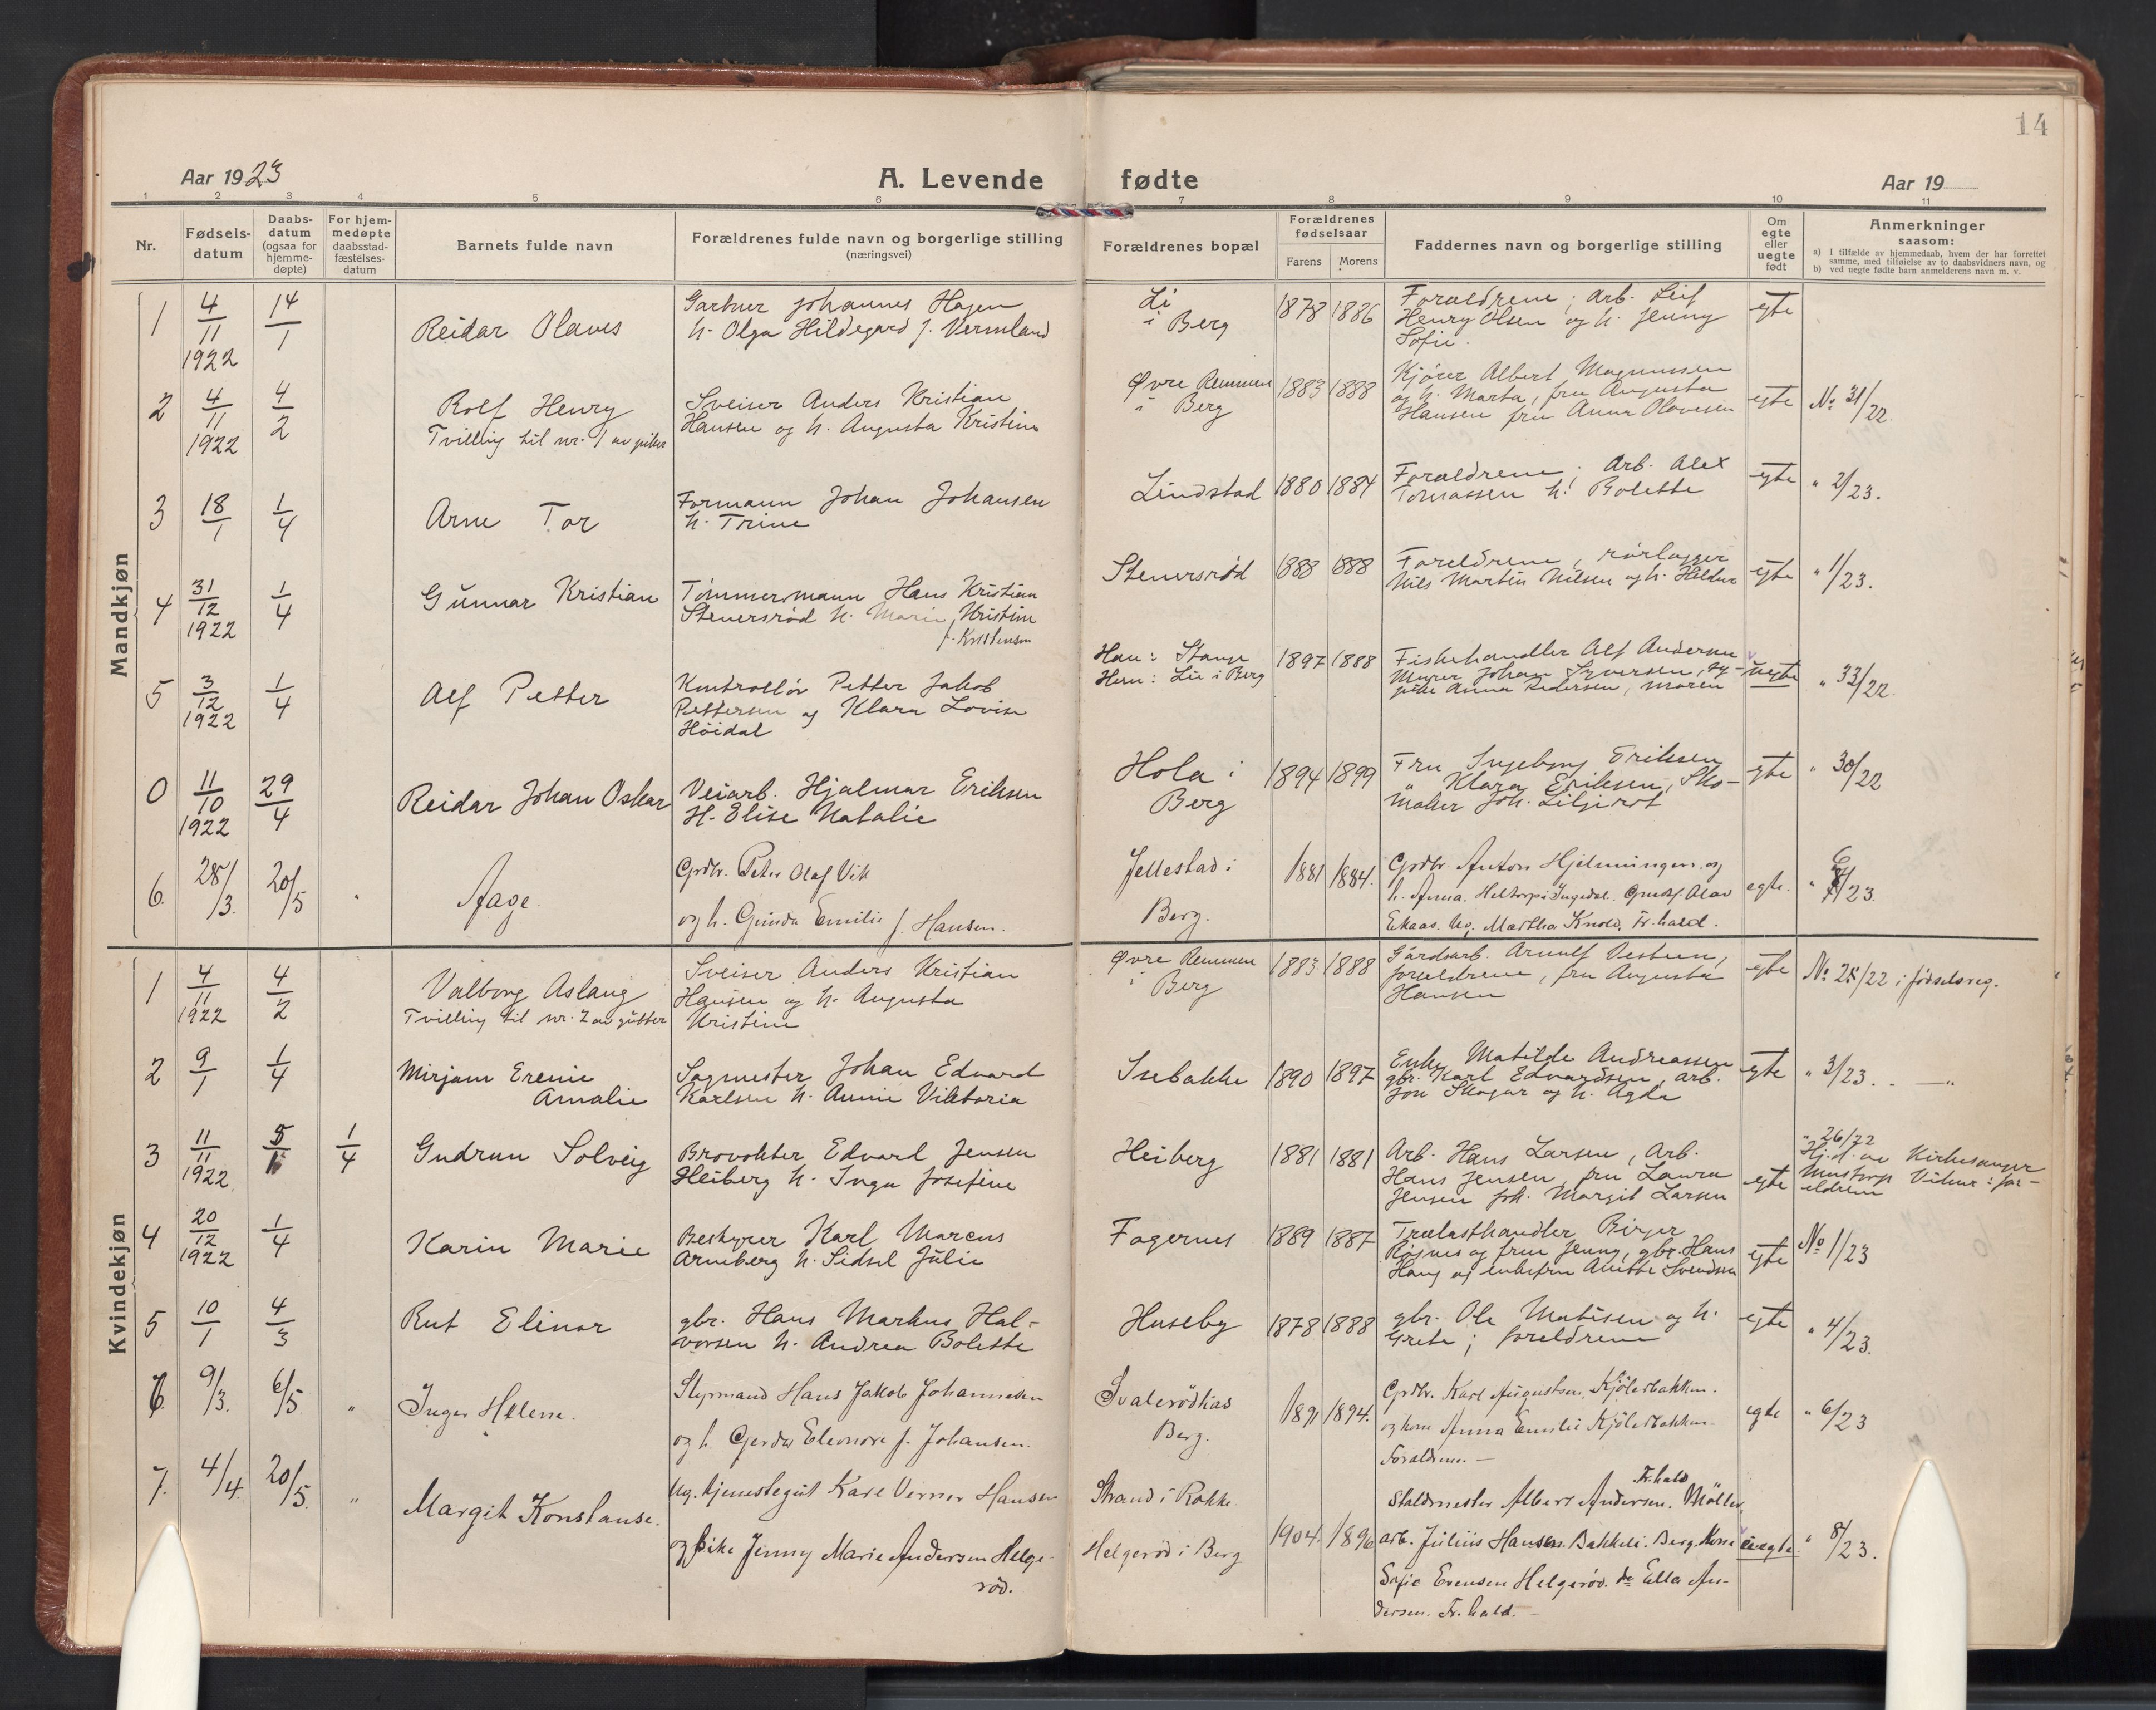 14
Aar 1923
A. Levende fødte
Aar 19
1 2 3 4 5 6 7 8 9 10 11
Nr.
Fødsels-
datum
Daabs-
datum
(ogsaa for
hjemme-
døpte)
For hjem-
medøpte
daabsstad-
fæstelses-
datum
Barnets fulde navn
Forældrenes fulde navn og borgerlige stilling
(næringsvei)
Forældrenes bopæl
Forældrenes
fødselsaar
Farens Morens
Faddernes navn og borgerlige stilling
Om
egte
eller
uegte
født
Anmerkninger
saasom:
a) I tilfælde av hjemmedaab, hvem der har forrettet
samme, med tilføielse av to daabsvidners navn, og
b) ved uegte fødte barn anmelderens navn m. v.
Mandkjøn
1 4/11 1922 14/1
Reidar Olaves
Gartner Johannes Hagen
h. Olga Hildegard f. Vermland
Li
i Berg
1878 1886
Forældrene; arb. Leif
Henry Olsen og h. Jenny
Sofie.
egte
2 4/11 1922 4/2
Rolf Henry
Tvilling til nr. 1 av piker
Sveiser Anders Kristian
Hansen og h. Augusta Kristine
Øvre Remmen
i Berg
1883 1888
Kjører Albert Magnussen
og h. Marta, fru Augusta
Hansen fru Anna Olavesen
egte
No 31/22.
3 18/1 1/4
Arne Tor
Formann Johan Johansen
h. Trine
Lindstad
1880 1884
Forældrene; Arb. Alex
Tomassen h. Bolette
egte
" 2/23.
4 31/12 1922 1/4
Gunnar Kristian
Tømmermann Hans Kristian
Stenersrød h. Marie Kristine
f. Kristensen
Stenersrød
1888 1888
Foreldrene, rørlegger
Nils Martin Nilsen og h. Hildur
egte
" 1/23.
5 3/12 1922 1/4
Alf Petter
Kontrollør Petter Jakob
Pettersen og Klara Lovise
Höidal
Han: Stange
Hun: Lie i Berg
1897 1888
Fiskehandler Alf Andersen
Murer Johan Syversen, sy-
pike Anna Pedersen, moren
uegte
" 33/22.
0 11/10 1922 29/4
Reidar Johan Oskar
Veiarb. Hjalmar Eriksen
H. Elise Natalie
Hola i
Berg
1894 1899
Fru Ingeborg Eriksen
" Klara Eriksen, Sko-
maker Joh. Liljerot
egte
" 30/22
6. 28/3. 20/5 "
Aage.
Grdbr. Peter Olaf Vik
og h. Gunda Emilie f. Hansen.
Jellestad i
Berg.
1881 1884.
Grdbr. Anton Hjelmungen og
h. Anna. Heltorp i Ingedal. Gustaf Olav
Ekaas. Ug. Martha Knold, Fr.hald.
egte.
" /23.
Kvindekjøn
1 4/11 1922 4/2
Valborg Aslaug
Tvilling til nr. 2 av gutter
Sveiser Anders Kristian
Hansen og h. Augusta
Kristine
Øvre Remmen
i Berg
1883 1888
Gårdsarb. Arnulf Vesteen,
foreldrene, fru Augusta
Hansen
egte
No 28/22 i fødselsreg.
2 9/1 1/4
Mirjam Erenie
Amalie
Sagmester Johan Edvard
Karlsen h. Annie Viktoria
Isebakke
1890 1897
Enke Matilde Andreassen
gbr. Karl Edvardsen, arb.
Jon Skogar og h. Agda
egte
" 3/23. - " -
3 11/11 1922 5/ 1/4
Gudrun Solveig
Brovokter Edvard Jensen
Heiberg h. Inga Josefine
Heiberg
1881 1881
Arb. Hans Larsen, Arb.
Hans Jensen, fru Laura
Jensen frk. Margit Larsen
egte
" 26/22
Hj.d. av Kirkesanger
Mustorp Vitner: for-
eldrene
4 20/12 1922 1/4
Karin Marie
Bestyrer Karl Marcus
Arneberg h. Sidsel Julie
Fagernes
1889 1887
Trælasthandler Birger
Røsnes og frue Jenny, gbr. Hans
Haug og enkefru Anette Svendsen
egte
No 1/23
5 10/1 4/3
Rut Elinor
gbr. Hans Markus Hal-
vorsen h. Andrea Bolette
Huseby
1878 1888
gbr. Ole Matisen og h.
Grete; foreldrene
egte
" 4/23.
6. 9/3. 6/5. "
Inger Helene.
Styrmand Hans Jakob Johannesen
og h. Gerda Eleonore f. Johansen.
Svalerødkas
Berg.
1891 1894.
Grdbr. Karl Augustsen, Kjølerbakken.
og kone Anna Emilie Kjølerbakken
Forældrene. -
egte
" 6/23
7. 4/4. 20/5. "
Margit Konstanse.
Ug. tjenestegut Kare Verner Hansen
og pike Jenny Marie Andersen Helge-
rød.
Strand i Rokke.
Helgerød i Berg
1904. 1896
Fr.hald
Staldmester Albert Andersen. Möller,
arb. Julius Hansen. Bakkeli. Berg. Kone
Sofie Evensen Helgerød. do Ella An-
dersen. Fr.hald. -
uegte.
" 8/23.